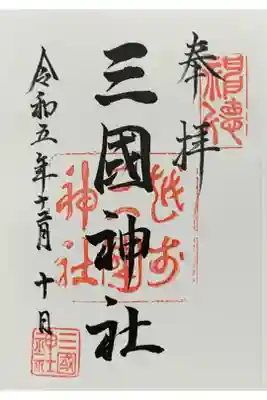 奉拝
越前
三國
神社
三國神社
令和五年十二月 十日
三國
神社